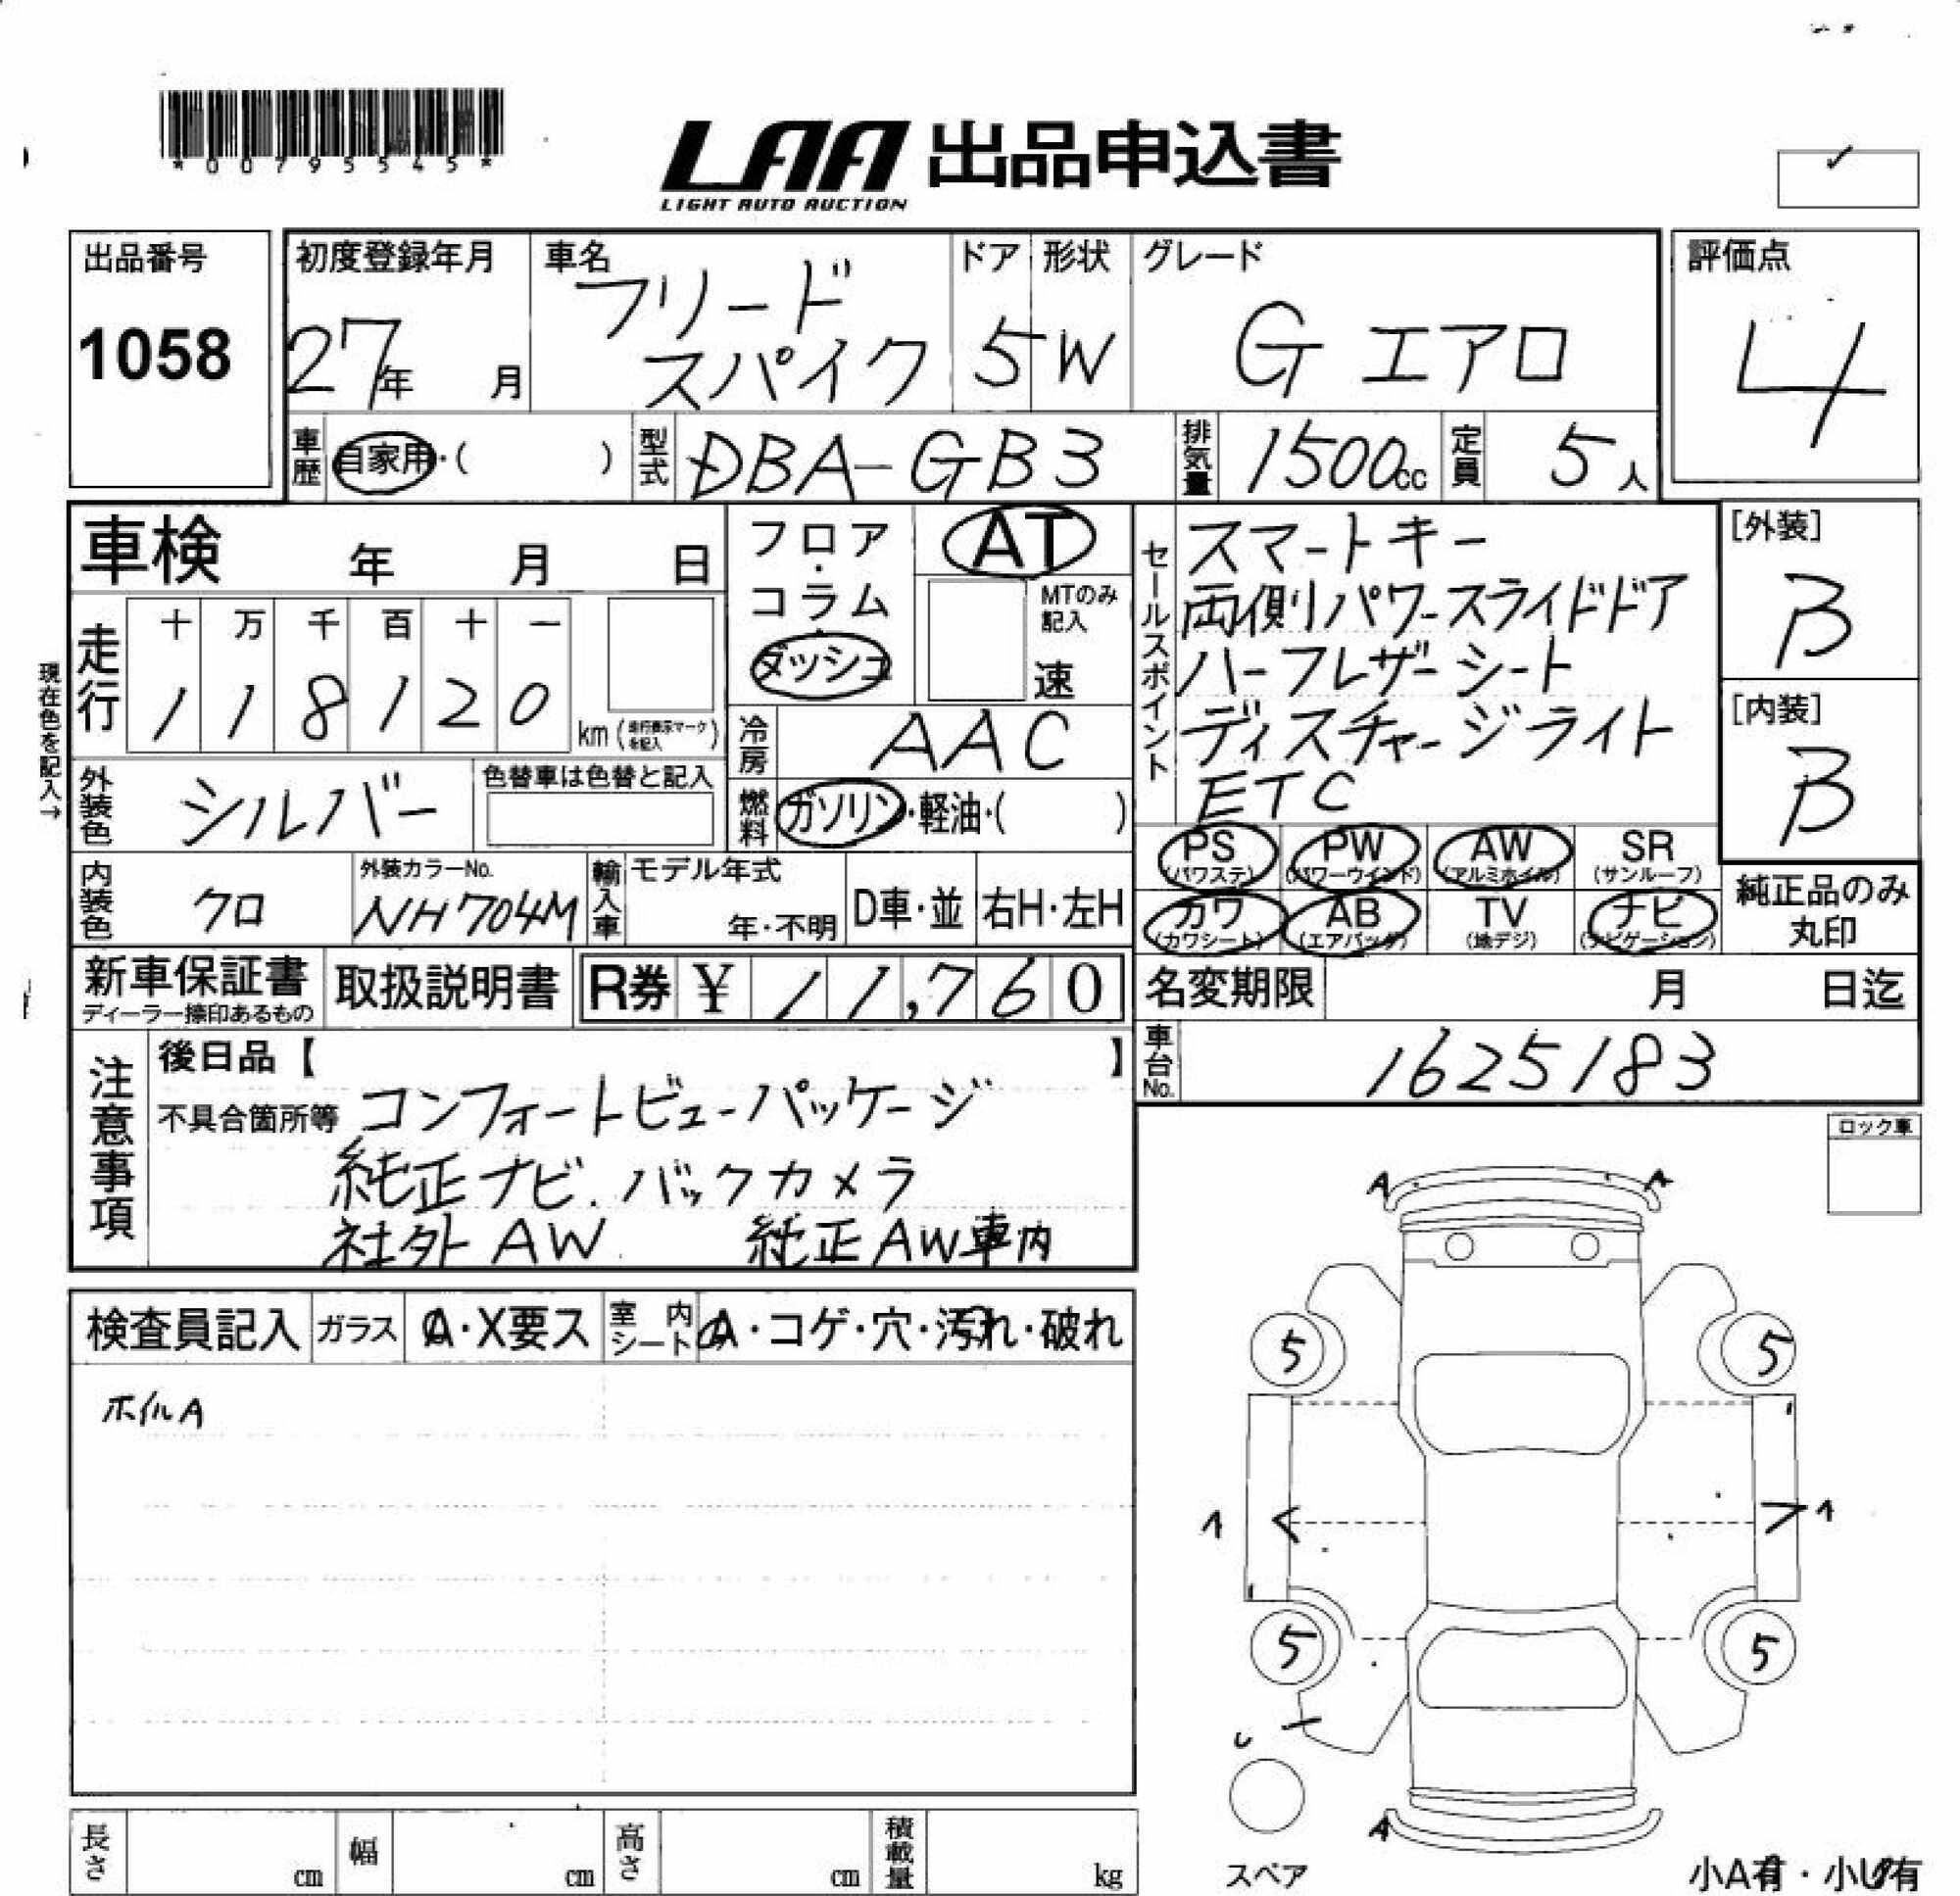 *00795545*
LAA 出品申込書
LIGHT AUTO AUCTION
出品番号
1058
初度登録年月
27年 月
車名
フリード
スパイク
ドア
5
形状
W
グレード
G エアロ
評価点
4
車歴 自家用・( )
型式 DBA-GB3
排気量 1500cc
定員 5人
車検 年 月 日
フロア・コラム・ダッシュ
AT
MTのみ記入
速
走行
十 万 千 百 十 一
1 1 8 1 2 0
km(走行表示マークを記入)
現在色を記入→
外装色 シルバー
色替車は色替と記入
冷房 AAC
燃料 ガソリン・軽油・( )
内装色 クロ
外装カラーNo.
NH704M
輸入車
モデル年式
年・不明
D車・並
右H・左H
セールスポイント
スマートキー
両側パワースライドドア
ハーフレザーシート
ディスチャージライト
ETC
[外装]
B
[内装]
B
PS (パワステ)
PW (パワーウインド)
AW (アルミホイル)
SR (サンルーフ)
カワ (カワシート)
AB (エアバッグ)
TV (地デジ)
ナビ (ナビゲーション)
純正品のみ
丸印
新車保証書
ディーラー捺印あるもの
取扱説明書
R券 ¥ 11,760
名変期限 月 日迄
車台No. 1625183
注意事項
後日品【 】
不具合箇所等 コンフォートビューパッケージ
純正ナビ.バックカメラ
社外AW 純正AW車内
ロック車
検査員記入
ガラス A・X要ス
室内シート A・コゲ・穴・汚れ・破れ
ホイルA
A A
5 5
1 1
5 5
A
スペア
小A有・小U有
長さ cm
幅 cm
高さ cm
積載量 kg